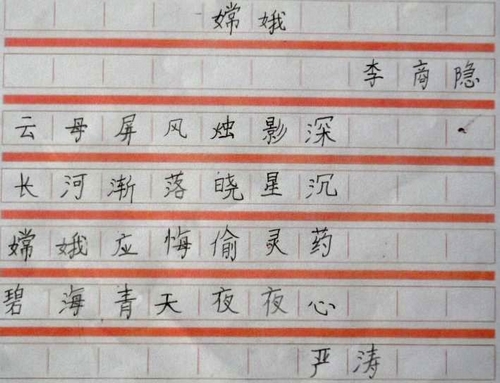 嫦娥
李商隐
云母屏风烛影深
长河渐落晓星沉
嫦娥应悔偷灵药
碧海青天夜夜心
严涛